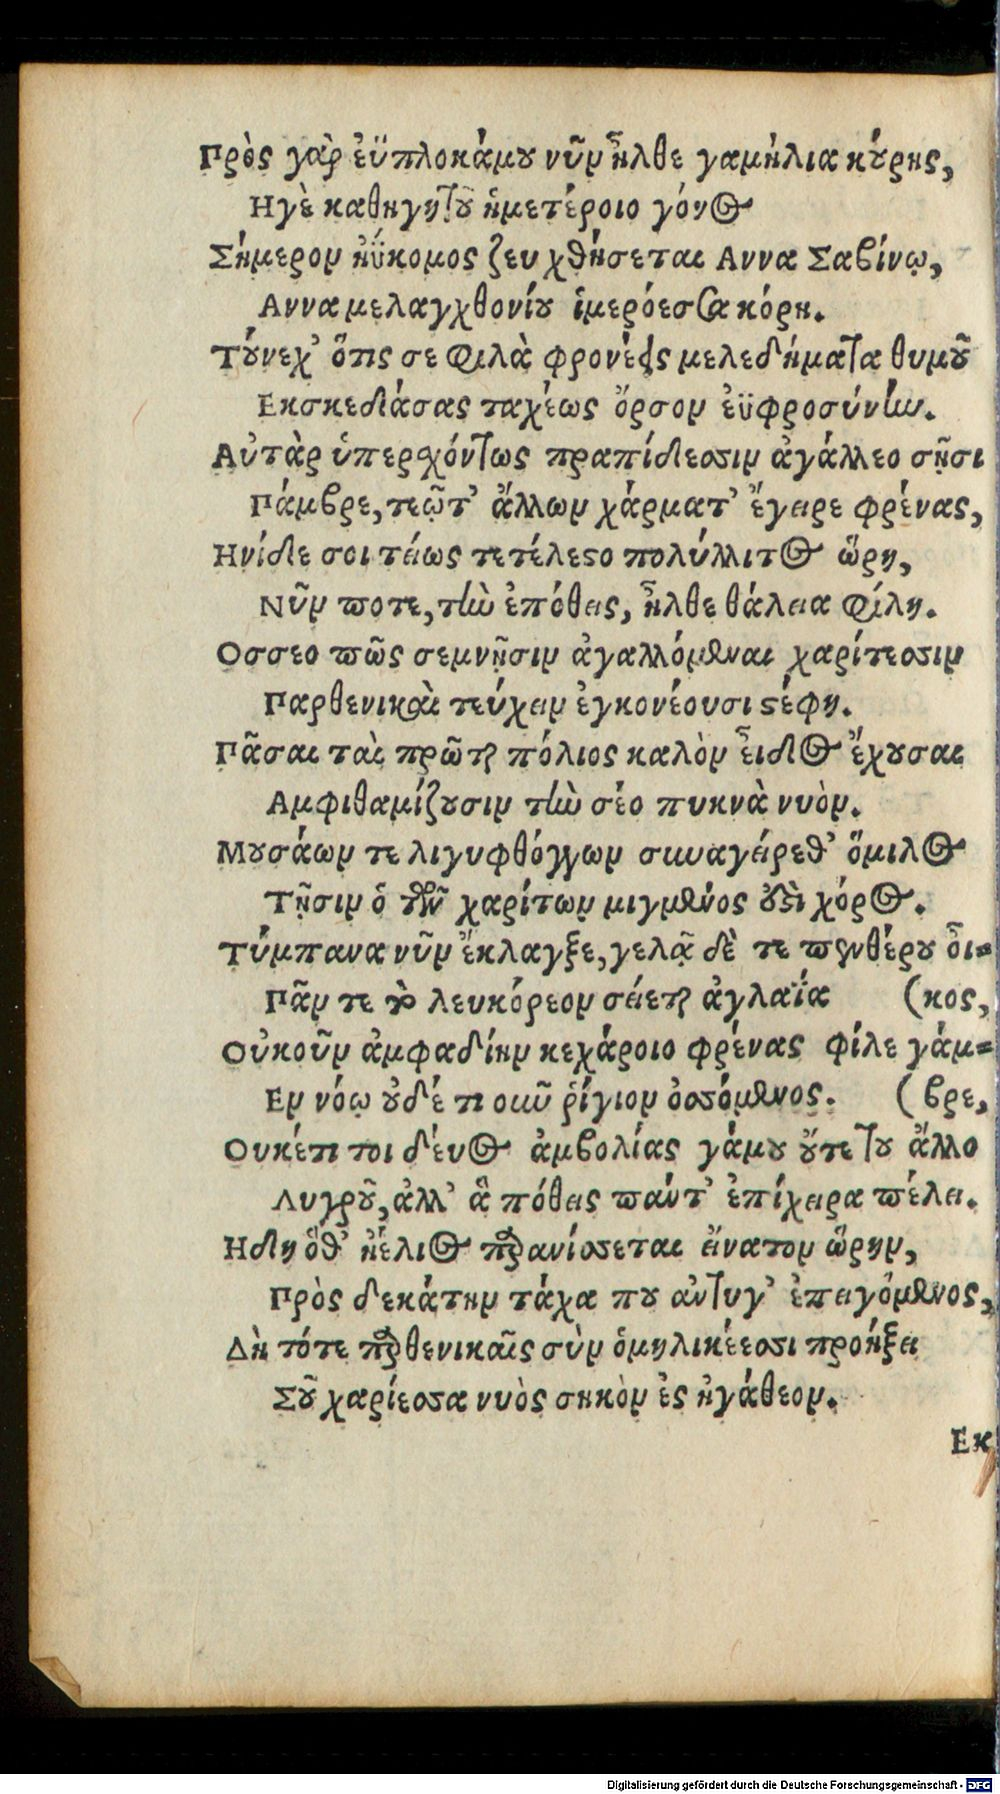 Πρὸς γὰρ ἐϋπλοκάμου νῦν ἦλθε γαμήλια κούρης,
Ηγὲ καθηγητοῦ ἡμετέροιο γόνος
Σήμερον ἠΰκομος ζευχθήσεται Αννα Σαβίνῳ,
Αννα μελαγχθονίου ἱμερόεσσα κόρη.
Τούνεχ' ὅτις σε φιλὰ φρονέεις μελεδήματα θυμοῦ
Εκσκεδιάσας ταχέως ὄρσον ἐϋφροσύνην.
Αὐτὰρ ὑπερχόντως πραπίδεσσιν ἀγάλλεο σῇσι
Γάμβρε, τεῷτ' ἄλλων χάρματ' ἔγειρε φρένας,
Ηνίδε σοι τέως τετέλεστο πολύλλιτος ὥρη,
Νῦν ποτε, τὴν ἐπόθεις, ἦλθε θάλεια φίλη.
Οσσεο πῶς σεμνῇσιν ἀγαλλόμεναι χαρίτεσσιν
Παρθενικαὶ τεύχειν ἐγκονέουσι στέφη.
Πᾶσαι ταὶ πρῶται πόλιος καλὸν εἶδος ἔχουσαι
Αμφιθαμίζουσιν τὴν σέο πυκνὰ νυὸν.
Μουσάων τε λιγυφθόγγων συναγείρεθ' ὅμιλος
Τῇσιν ὁ τῶν χαρίτων μιγμένος ἐστὶ χόρος.
Τύμπανα νῦν ἔκλαγξε, γελᾷ δὲ τε πενθέρου οἶ-
Πᾶν τε γὰρ λευκόρεον σείεται ἀγλαΐα (κος,
Οὐκοῦν ἀμφαδίην κεχάροιο φρένας φίλε γάμ-
Εν νόῳ οὐδέ τι σοῦ ῥίγιον ὀσσόμενος. (βρε,
Ουκέτι τοι δέυος ἀμβολίας γάμου οὔτε του ἄλλο
Λυγροῦ, ἀλλ' ἃ πόθεις πάντ' ἐπίχειρα πέλει.
Ηδη ὅθ' ἠέλιος παρανίσσεται ἔνατον ὥρην,
Πρὸς δεκάτην τάχα που ἀντυγ' ἐπειγόμενος,
Δὴ τότε παρθενικαῖς σὺν ὁμηλικέεσσι προήξει
Σοῦ χαρίεσσα νυὸς σηκὸν ἐς ἠγάθεον.
Εκ
Digitalisierung gefördert durch die Deutsche Forschungsgemeinschaft - DFG